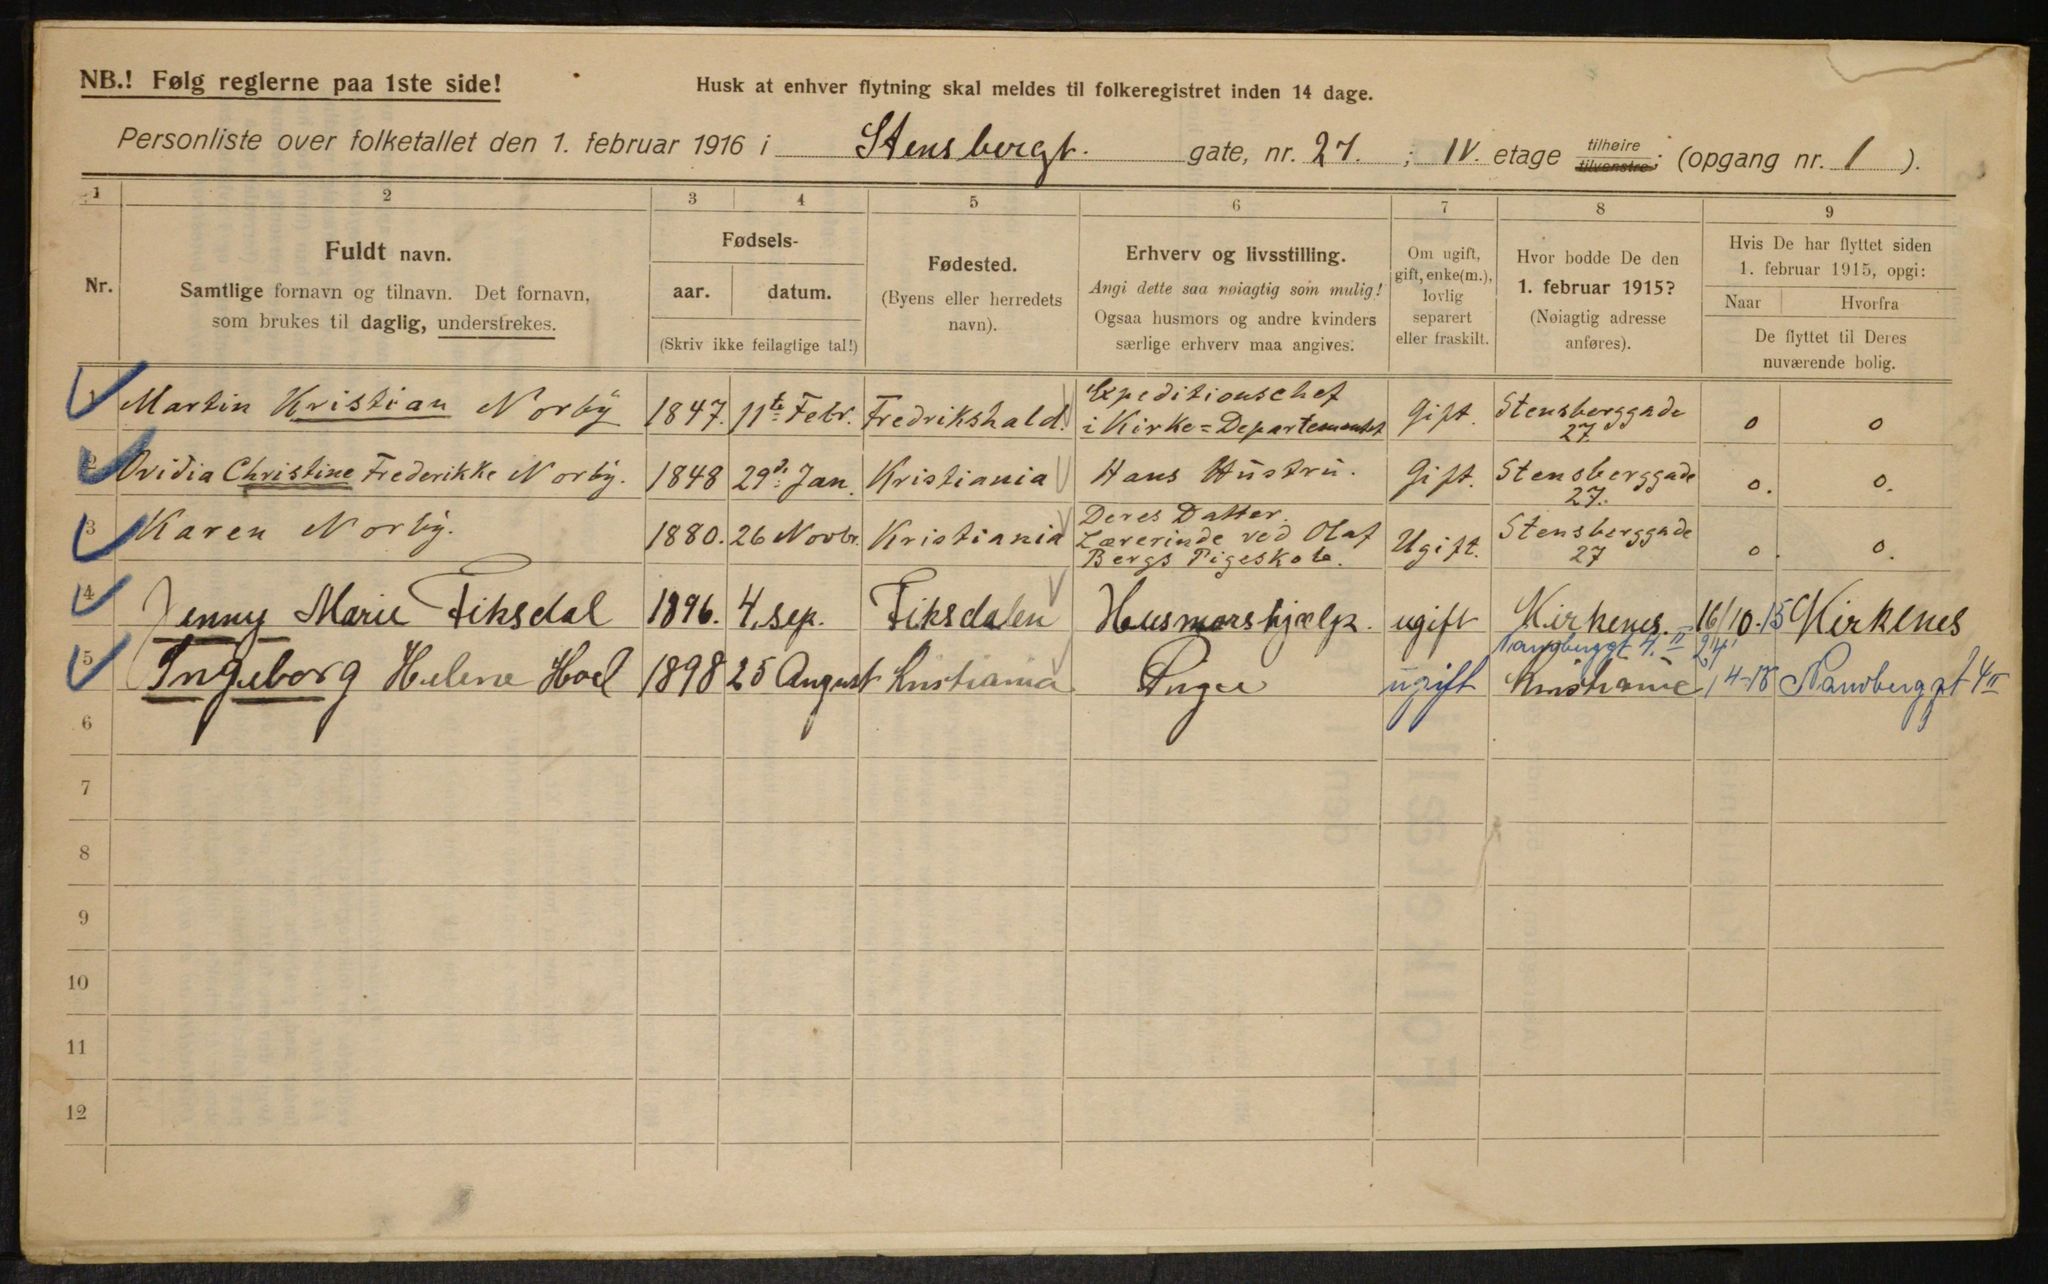 NB.! Følg reglerne paa 1ste side!
Husk at enhver flytning skal meldes til folkeregistret inden 14 dage.
Personliste over folketallet den 1. februar 1916 i Stensbergt. gate, nr. 27. ; IV. etage tilhøire tilvenstre; (opgang nr. 1 ).
1 2 3 4 5 6 7 8 9
Nr.
Fuldt navn.
Samtlige fornavn og tilnavn. Det fornavn,
som brukes til daglig, understrekes.
Fødsels-
aar. datum.
(Skriv ikke feilagtige tal!)
Fødested.
(Byens eller herredets
navn).
Erhverv og livsstilling.
Angi dette saa nøiagtig som mulig!
Ogsaa husmors og andre kvinders
særlige erhverv maa angives.
Om ugift,
gift, enke(m.),
lovlig
separert
eller fraskilt.
Hvor bodde De den
1. februar 1915?
(Nøiagtig adresse
anføres).
Hvis De har flyttet siden
1. februar 1915, opgi:
Naar Hvorfra
De flyttet til Deres
nuværende bolig.
1 Martin Kristian Norby 1847. 11te Febr. Fredrikshald. Expeditionschef i Kirke=Departementet Gift. Stensberggade 27 0 0
2 Ovidia Christine Frederikke Norby. 1848 29d. Jan. Kristiania Hans Hustru. Gift. Stensberggade 27. 0. 0.
3 Karen Norby. 1880. 26 Novbr. Kristiania Deres Datter. Lærerinde ved Olaf Bergs Pigeskole. Ugift. Stensberggade 27 0. 0.
4 Jenny Marie Fiksdal 1896. 4. sep. Fiksdalen Husmorshjælp. ugift Kirkenes. 16/10.15 Kirkenes
5 Ingeborg Helene Hoel 1898 25 August Kristiania Pige ugift Kristiania
6
7
8
9
10
11
12